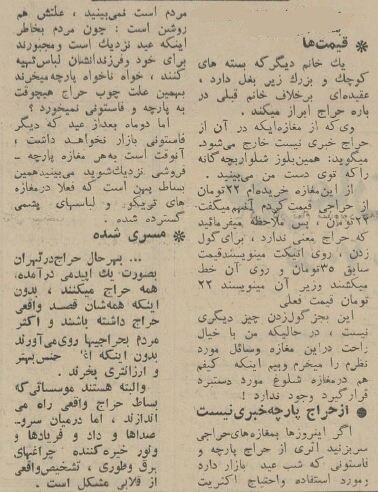 * قیمت‌ها
یك خانم دیگر که بسته های
کوچك و بزرك زیر بغل دارد ،
عقیده‌ای برخلاف خانم قبلی در
باره حراج ابراز میکند .
وی که از مغازه‌ایکه در آن از
حراج خبری نیست خارج می‌شود.
میگوید: همین بلوز شلوار بچه گانه
را که توی دست من می‌بینید .
از این مغازه خریده‌ام ۲۲ تومان
از حراجی قیمت کردم آنهم میگفت
۲۲ تومن ، پس ملاحظه میفرمائید
که حراج معنی ندارد ، برای گول
زدن ، روی اتیکت مینویسند قیمت
سابق ۳۵ تومان و روی آن خط
میکشند وزیر آن مینویسند ۲۲
تومان قیمت فعلی
این بجز گول زدن چیز دیگری
نیست ، در حالیکه من با خیال
راحت در این مغازه وسائل مورد
نظرم را میخرم و بیم اینکه کیفم
هم در مغازه شلوغ مورد دستبرد
قرار گیرد وجود ندارد !
● از حراج پارچه خبری نیست
اگر اینروزها بمغازه‌های حراجی
سر بزنید اثری از حراج پارچه و
فاستونی که شب عید بازار دارد
و مورد استفاده و احتیاج اکثریت
مردم است نمی‌بینید ، علتش هم
روشن است : چون مردم بخاطر
اینکه عید نزدیك است و مجبورند
برای خود و فرزندانشان لباس تهیه
کنند ، خواه ناخواه پارچه میخرند
بهمین علت چوب حراج هیچوقت
به پارچه و فاستونی نمیخورد ؟
اما دو ماه بعد از عید که دیگر
فاستونی بازار نخواهد داشت ،
آنوقت است به هر مغازه پارچه ـ
فروشی نزدیك شوید می‌بینید همین
بساط پهن است که فعلا در مغازه
های تریکو و لباسهای پشمی
گسترده شده .
* مسری شده
... بهر حال حراج در تهران
بصورت یك اپیدمی درآمده،
همه حراج میکنند ، بدون
اینکه همه‌شان قصد واقعی
حراج داشته باشند و اکثر
مردم بحراجیها روی می‌آورند
بدون اینکه جنس بهتر
و ارزانتری بخرند .
والبته هستند موسساتی که
بساط حراج واقعی راه می
اندازند ، اما درمیان سروـ
صداها و داد و فریادها و
ونور خیره‌کننده چراغهای
برق وطوری ، تشخیص واقعی
از قلابی مشکل است .